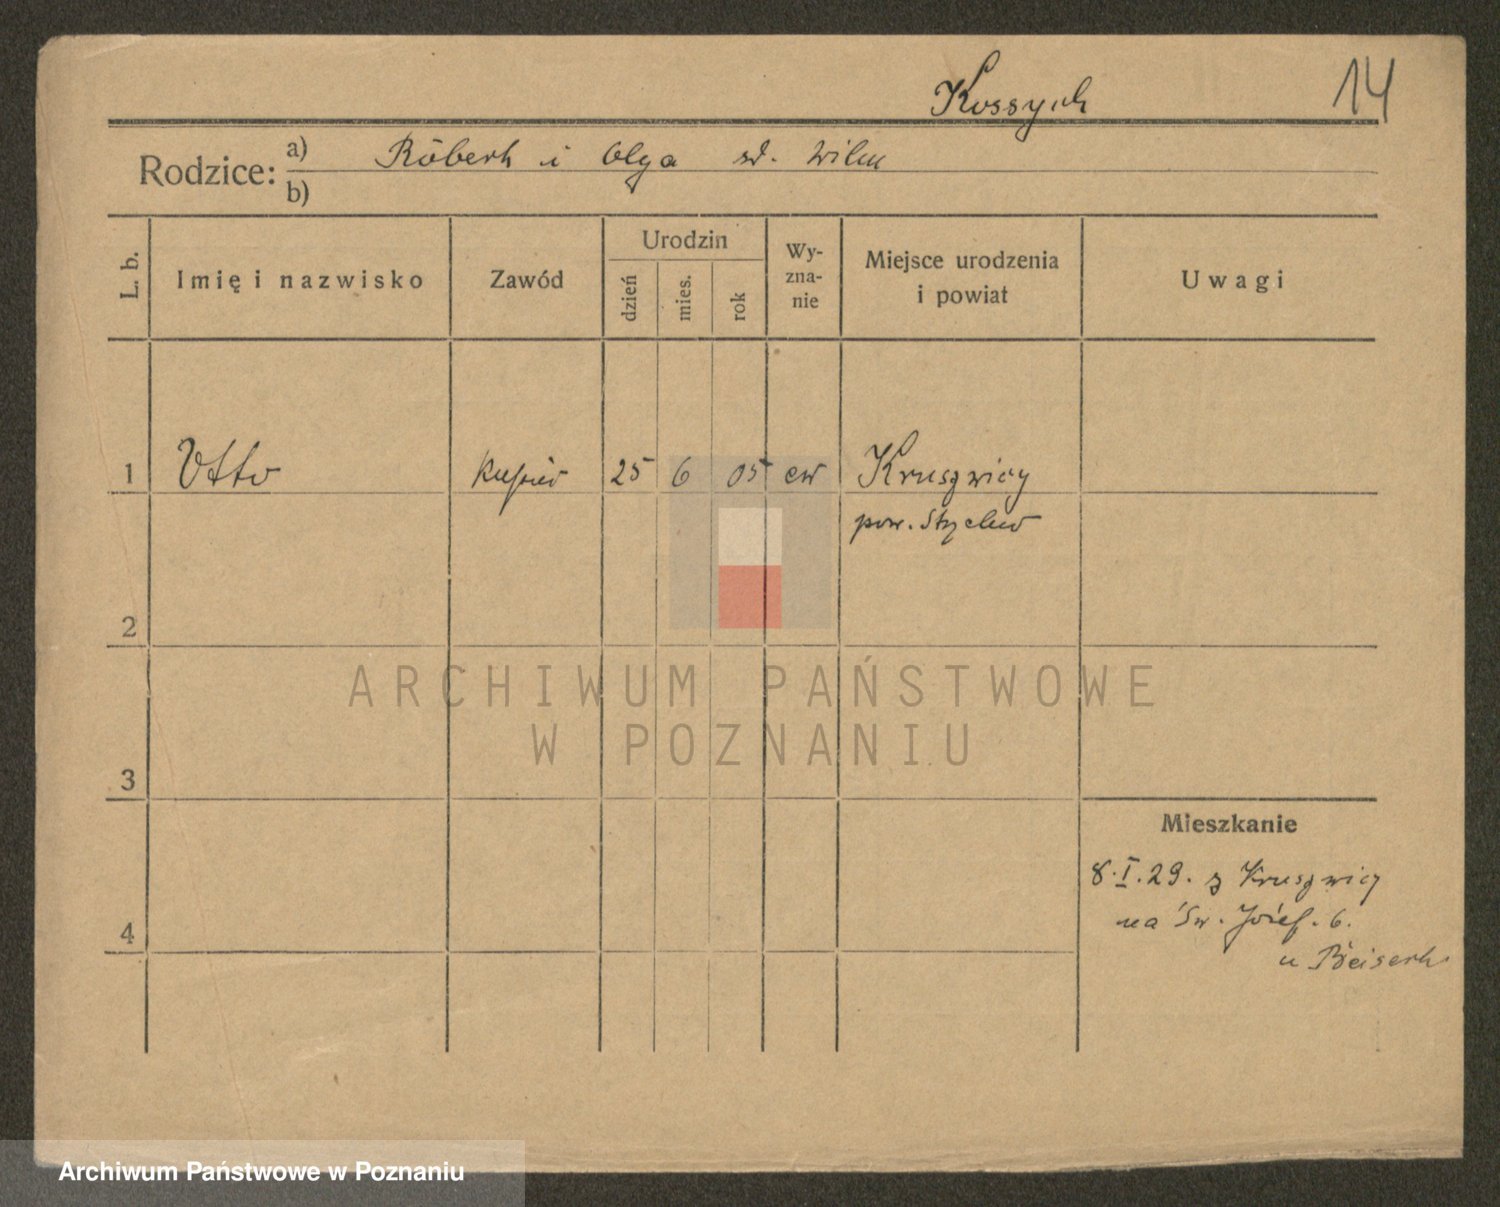 Kossyck
14
Rodzice: a) Robert i Olga
b)
L. b. Imię i nazwisko Zawód Urodzin dzień mies. rok Wy-zna-nie Miejsce urodzenia i powiat Uwagi
1 Otto kupiec 25 6 05 ew Kruszwicy
pow. Strzelno
2
ARCHIWUM PAŃSTWOWE
W POZNANIU
3
Mieszkanie
8.I.29. z Kruszwicy
4
na Św. Józef. 6.
u
Archiwum Państwowe w Poznaniu